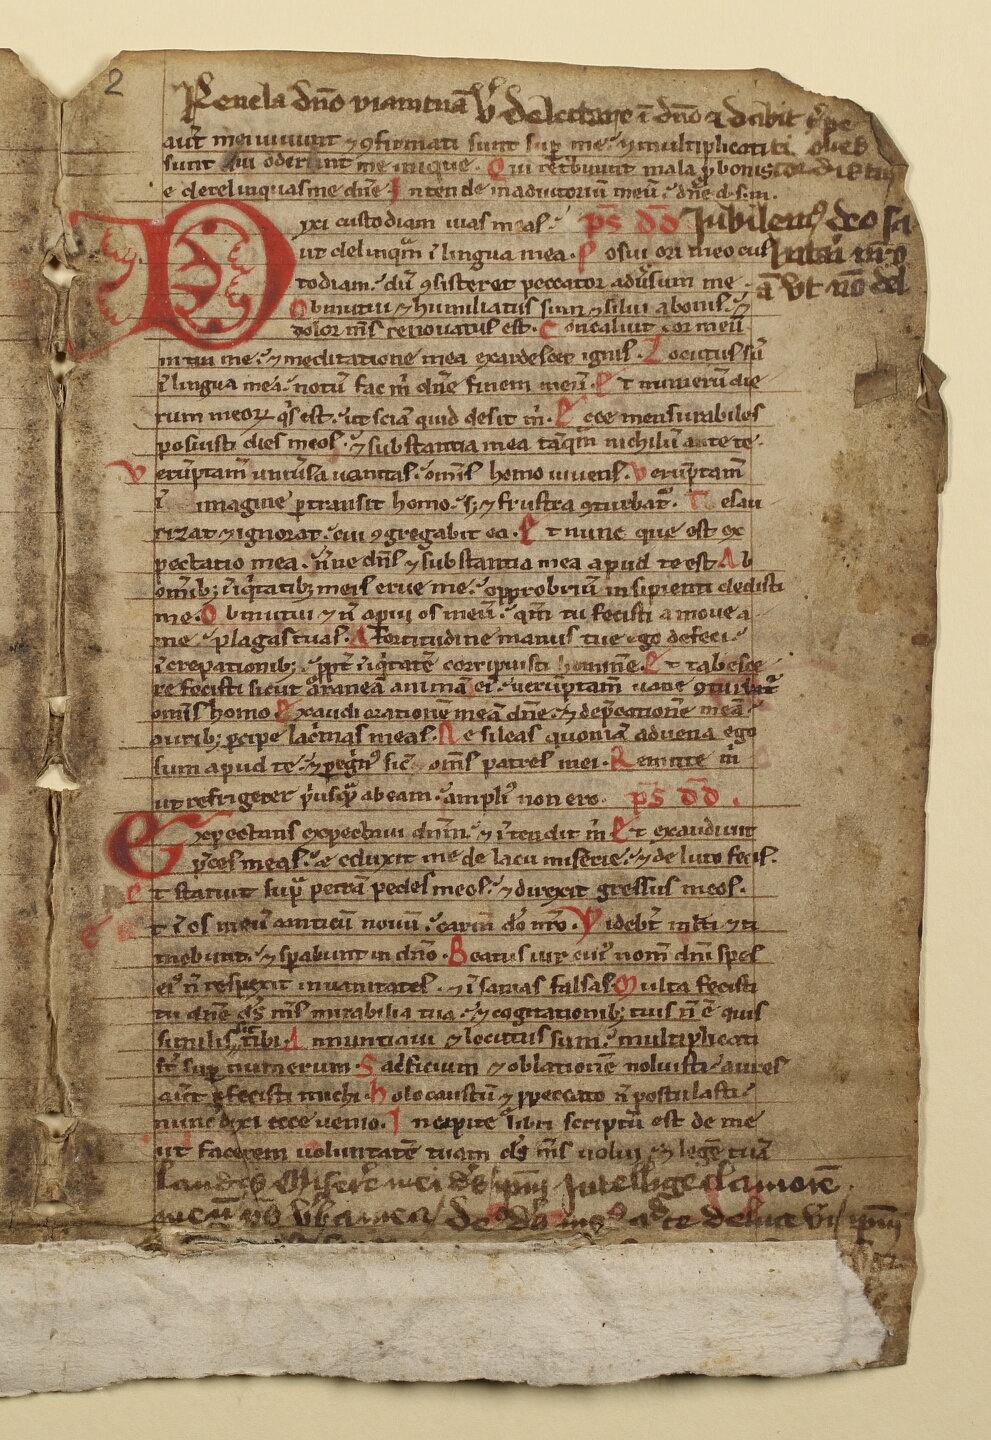 2
Reuela dño viam tuã V̊ delectare ĩ dño & dabit
aut̃ mei uiuunt ⁊ ꝯfirmati sunt sup̱ me ⁊ multiplicati
sunt qui oderunt me inique. Qui ret̃buunt mala ꝓ bonis
e derelinquas me dñe Intende in adiutoriũ meũ dñe d. s. m.
Dixi custodiam uias meas. ps̃ dd̃ Jubilem᷒ deo sa
ut delinqm̃ ĩ lingua mea. Posui ori meo cus lutari nr̃o
todiam. dũ ꝯsisteret peccator adũsum me ã Vt nõ del
Obmutui ⁊ humiliatus sum ⁊ silui a bonis. ⁊
dolor m̃s renouatus est. Concaluit cor meũ
intra me. ⁊ meditatione mea exardescet ignis. Locutus sũ
ĩ lingua mea. notũ fac m̃ dñe finem meũ. Et numerũ die
rum meoꝝ q̃s est. ut sciã quid desit m̃. Ecce mensurabiles
posuisti dies meos. ⁊ substantia mea tãqm̃ nichilũ ante te.
Verũptam̃ uniũsa uanitas. omĩs homo uiuens. Verũptam̃
ĩ imagine ꝑtransit homo. s; ⁊ frustra ꝯturbat᷒. Tesau
rizat ⁊ ignorat. cui ꝯgregabit ea. Et nunc que est ex
pectatio mea. ñne dñs ⁊ substantia mea apud te est Ab
omĩb; ĩiq̃tatib; meis erue me. opprobriũ insipienti dedisti
me. Obmutui ⁊ ñ aꝑui os meũ. qm̃ tu fecisti amoue a
me. plagas tuas. A fortitudine manus tue ego defeci.
ĩcrepationib; ꝓpt̃ ĩiq̃tatẽ corripuisti hominẽ. Et tabesce
re fecisti sicut araneã animã ei᷒. uerũptam̃ uane ꝯturbat᷒
omĩs homo Exaudi orationẽ meã dñe. ⁊ dep̃cationẽ meã.
aurib; ꝑcipe lacrimas meas. Ne sileas quoniã aduena ego
sum apud te. ⁊ peregrin᷒ sic̃ omĩs patres mei. Remitte m̃
ut refrigerer p̃usqᷓ abeam. ampli᷒ non ero. ps̃ dd̃.
Expectans expectaui dnm̃. ⁊ ĩtendit m̃ Et exaudiuit
p̃ces meas. e eduxit me de lacu miserie. ⁊ de luto fecis.
Et statuit supᷓ petrã pedes meos. ⁊ direxit gressus meos.
Et ĩ os meũ canticũ nouũ. carm̃ do nr̃o. Videbt̃ mlti ⁊ ti
mebunt. ⁊ sꝑabunt in dño. Beatus uir cui᷒ nom̃ dñi spes
ei᷒ ñ respexit in uanitates. ⁊ ĩsanias falsas Multa fecisti
tu dñe ds̃ m̃s mirabilia tua. ⁊ cogitationib; tuis ñ ẽ quis
similis tibi Annuntiaui ⁊ locutus sum. multiplicati
st̃ sup̱ numerum. Sacrificium ⁊ oblationẽ noluisti. aures
aut̃ ꝑfecisti michi. Holocaustũ ⁊ ꝓ peccato ñ postulasti.
nunc dixi ecce uenio. In capite libri scriptũ est de me
ut facerem uoluntatẽ tuam ds̃ m̃s uolui. ⁊ legẽ tuã
landes Miserere mei ds̃ Intellige clamorẽ
meũ de luce